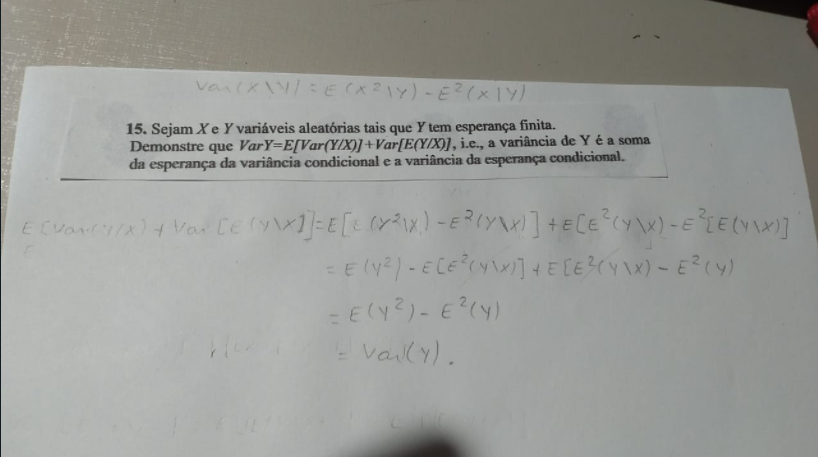 Var(X\Y) = E(X²\Y) - E²(X|Y)
15. Sejam X e Y variáveis aleatórias tais que Y tem esperança finita.
Demonstre que VarY=E[Var(Y/X)]+Var[E(Y/X)], i.e., a variância de Y é a soma
da esperança da variância condicional e a variância da esperança condicional.
E[Var(Y/X) + Var[E(Y\X)] = E[E(Y²\X) - E²(Y\X)] + E[E²(Y\X) - E²[E(Y\X)]
= E(Y²) - E[E²(Y\X)] + E[E²(Y\X) - E²(Y)
= E(Y²) - E²(Y)
= Var(Y).